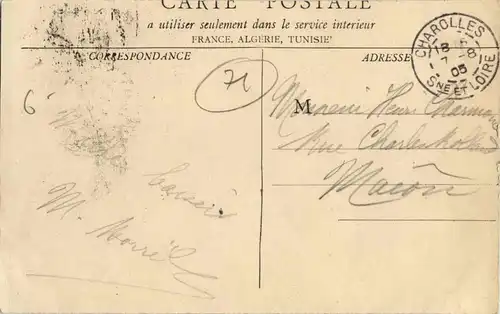 CARTE POSTALE
a utiliser seulement dans le service interieur
FRANCE, ALGÉRIE, TUNISIE
CORRESPONDANCE
ADRESSE
CHAROLLES
18
7 - 8
05
SNE ET LOIRE
71
6
M
Monsieur Henri
Rue Charles
Macon
M.